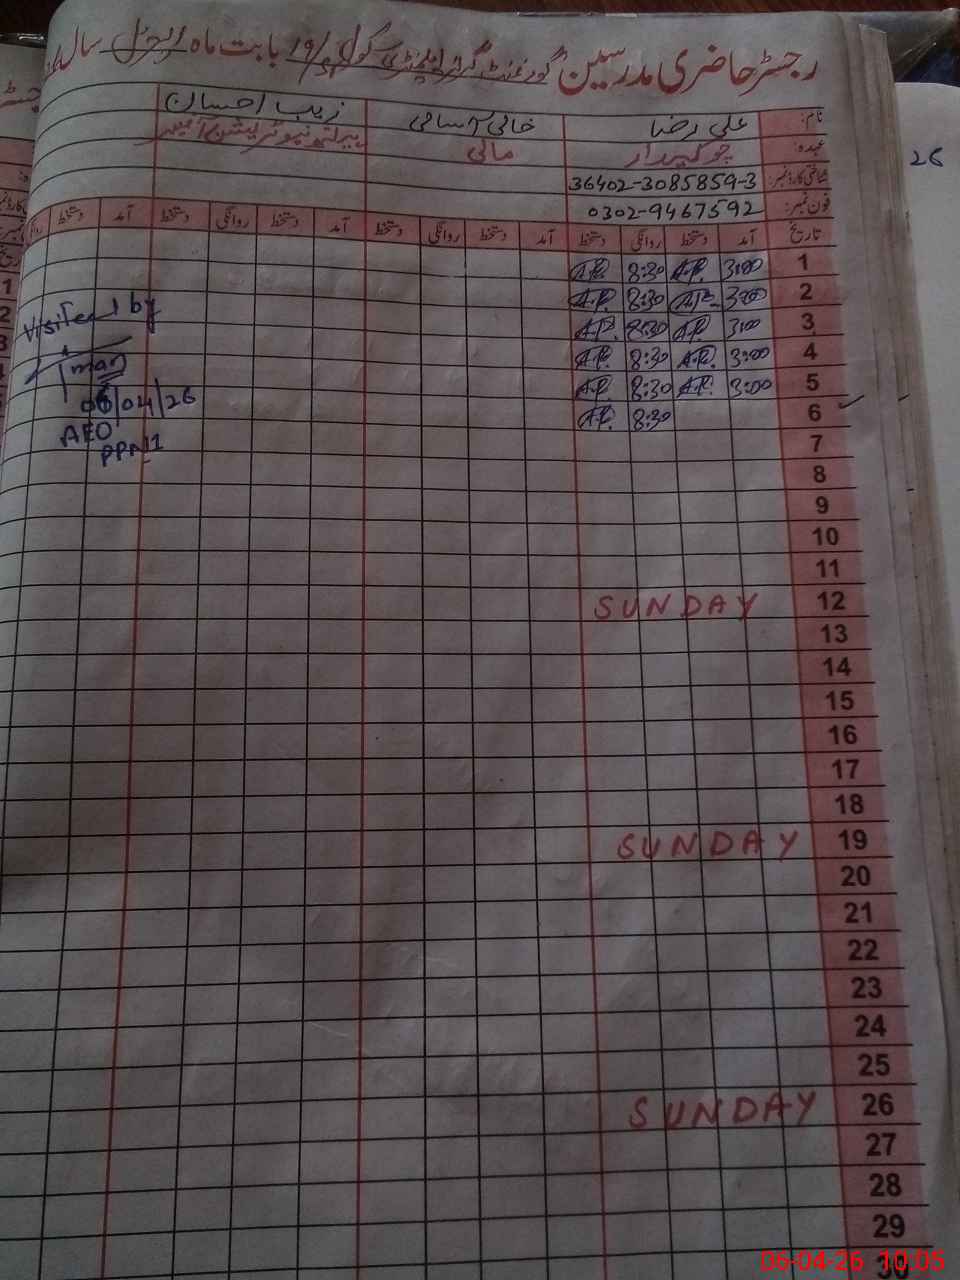 رجسٹر حاضری مدرسین گورنمنٹ گرلز ایلیمنٹری سکول 19/ بابت ماہ اپریل سال
نام: علی رضا خالی آسامی زیب احسان
عہدہ: چوکیدار مالی
شناختی کارڈ نمبر: 36402-3085859-3
فون نمبر: 0302-9467592
تاریخ آمد دستخط روانگی دستخط آمد دستخط روانگی دستخط آمد دستخط روانگی دستخط آمد دستخط
1 3:00 A.R. 8:30 A.R.
2 3:00 A.R. 8:30 A.R.
3 3:00 A.R. 8:30 A.R.
4 3:00 A.R. 8:30 A.R.
5 3:00 A.R. 8:30 A.R.
6 8:30 A.R.
7
8
9
10
11
12 SUNDAY
13
14
15
16
17
18
19 SUNDAY
20
21
22
23
24
25
26 SUNDAY
27
28
29
30
Visited by
06/04/26
AEO
26
06-04-26 10:05